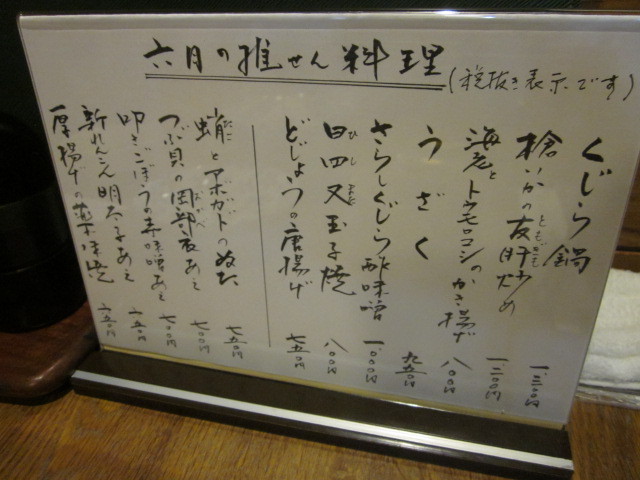 六月の推せん料理
(税抜き表示です)
くじら鍋 一、三〇〇円
槍いかの友肝炒め 一、二〇〇円
ともぎも
海老とトウモロコシのかき揚げ 八〇〇円
うざく 九五〇円
さらしくじら酢味噌 一、〇〇〇円
日四又玉子焼 八〇〇円
どじょうの唐揚げ 七五〇円
蛸とアボガドのぬた 七五〇円
たこ
つぶ貝の岡部和え 七〇〇円
おかべ
叩きごぼうの辛味噌あえ 七〇〇円
新れんこん明太子あえ 六五〇円
厚揚げの薬味焼 六五〇円